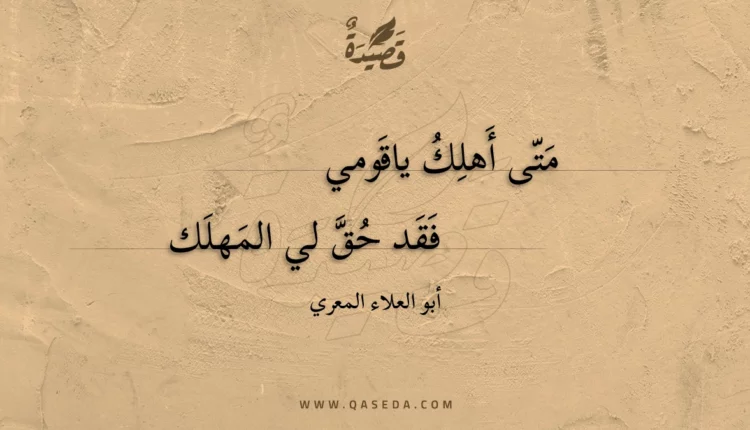 قَصِيدَةٌ
مَتّى أَهلِكُ ياقَومي
فَقَد حُقَّ لي المَهلَك
أبو العلاء المعري
WWW.QASEDA.COM